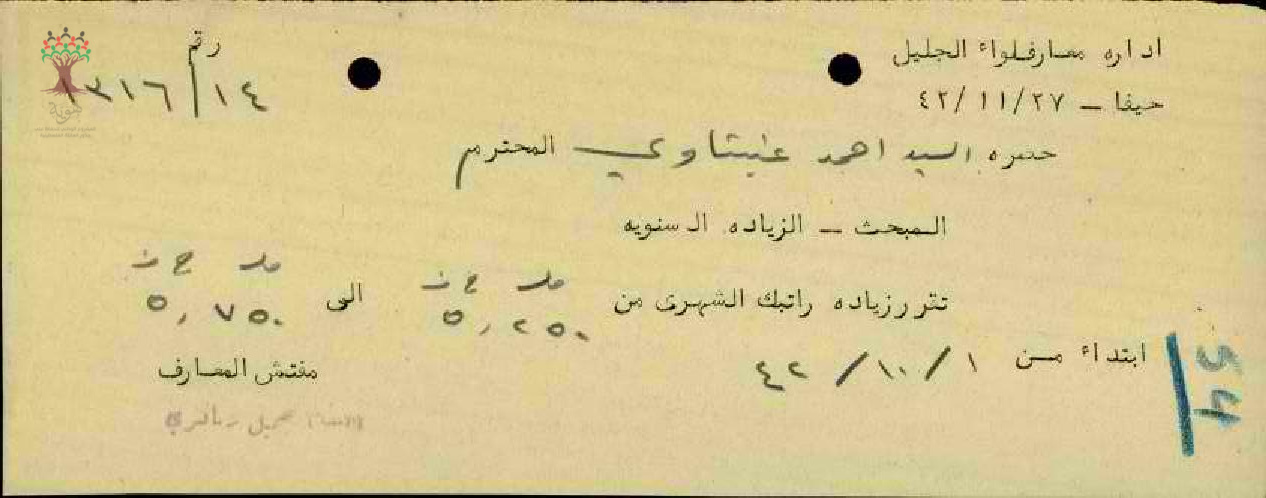 اداره معارف لواء الجليل
رقم ١٣١٦/١٤
حيفا – ٤٢/١١/٢٧
حضره السيد احمد عيشاوي المحترم
المبحث – الزياده السنويه
مل ج ف مل ج ف
تقرر زياده راتبك الشهرى من ٥,٢٥٠ الى ٥,٧٥٠
ابتداء من ٤٢/١٠/١
مفتش المعارف
جميل
هوية